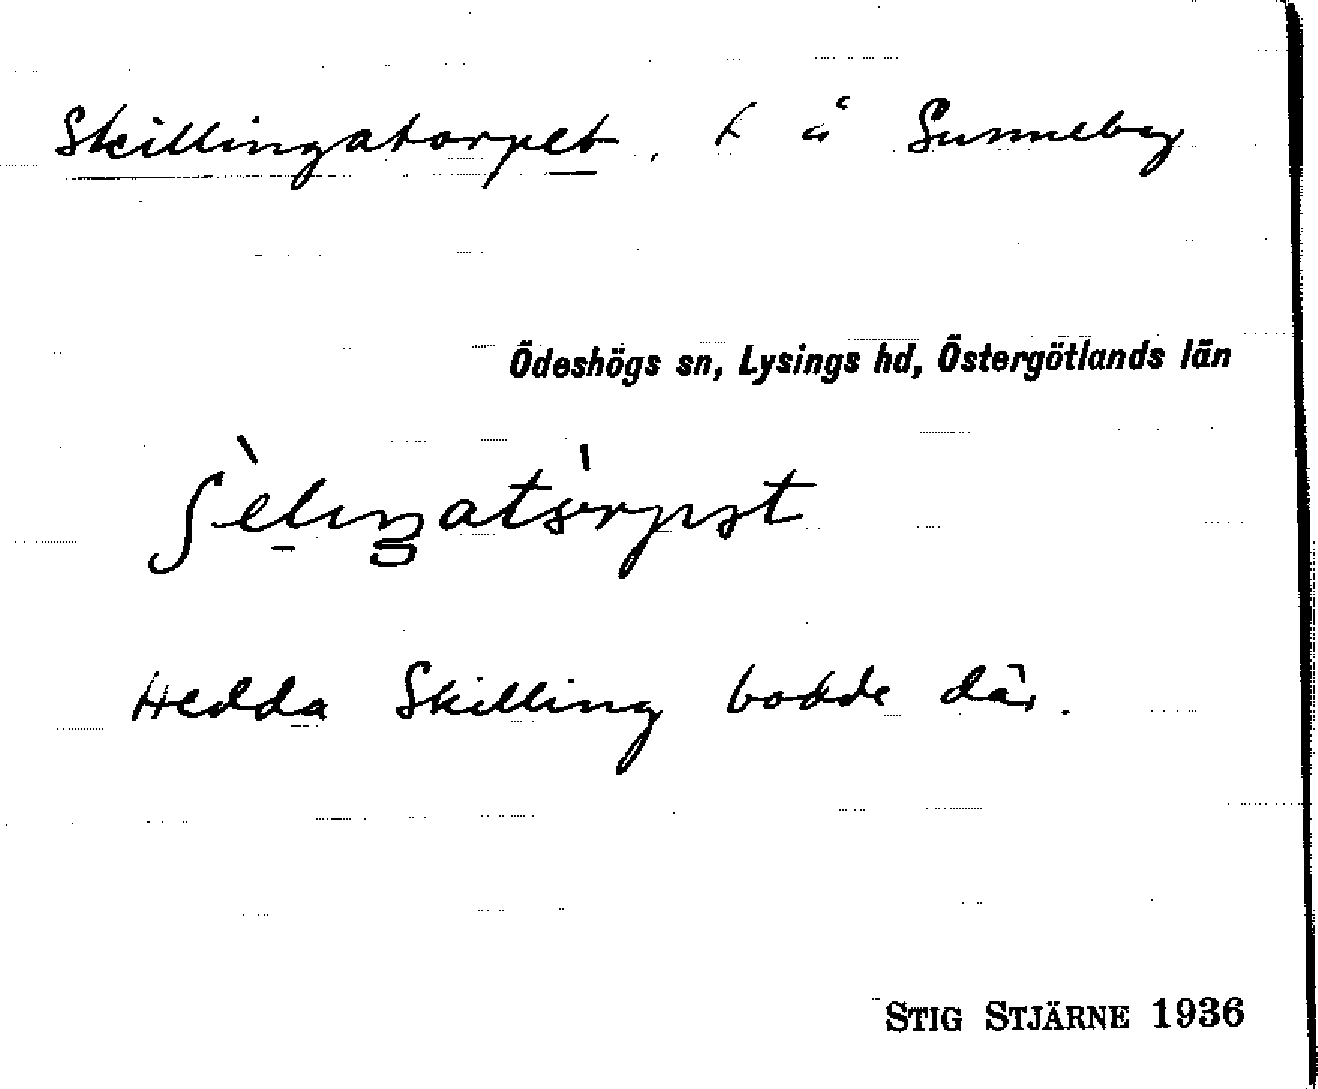 Skillingatorpet, t å Sunneby
Ödeshögs sn, Lysings hd, Östergötlands län
Hedda Skilling bodde där.
STIG STJÄRNE 1936